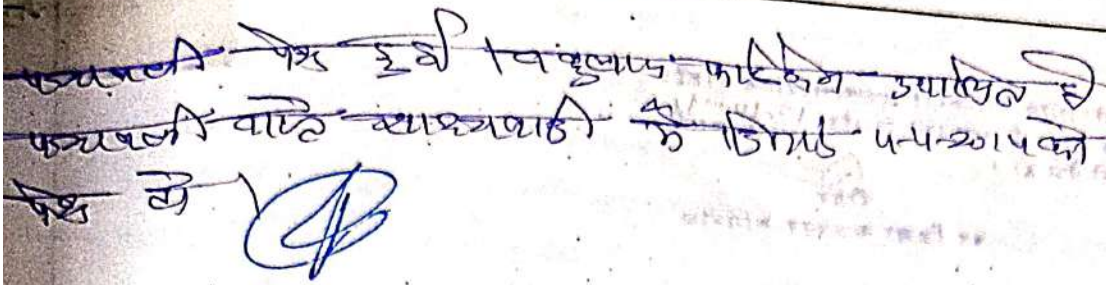 पत्रावली पेश हुई । वकुलाय फरिकेन उपस्थित है
पत्रावली वास्ते साक्ष्यवादी के दिनांक ५-५-२०१५ को
पेश हो ।